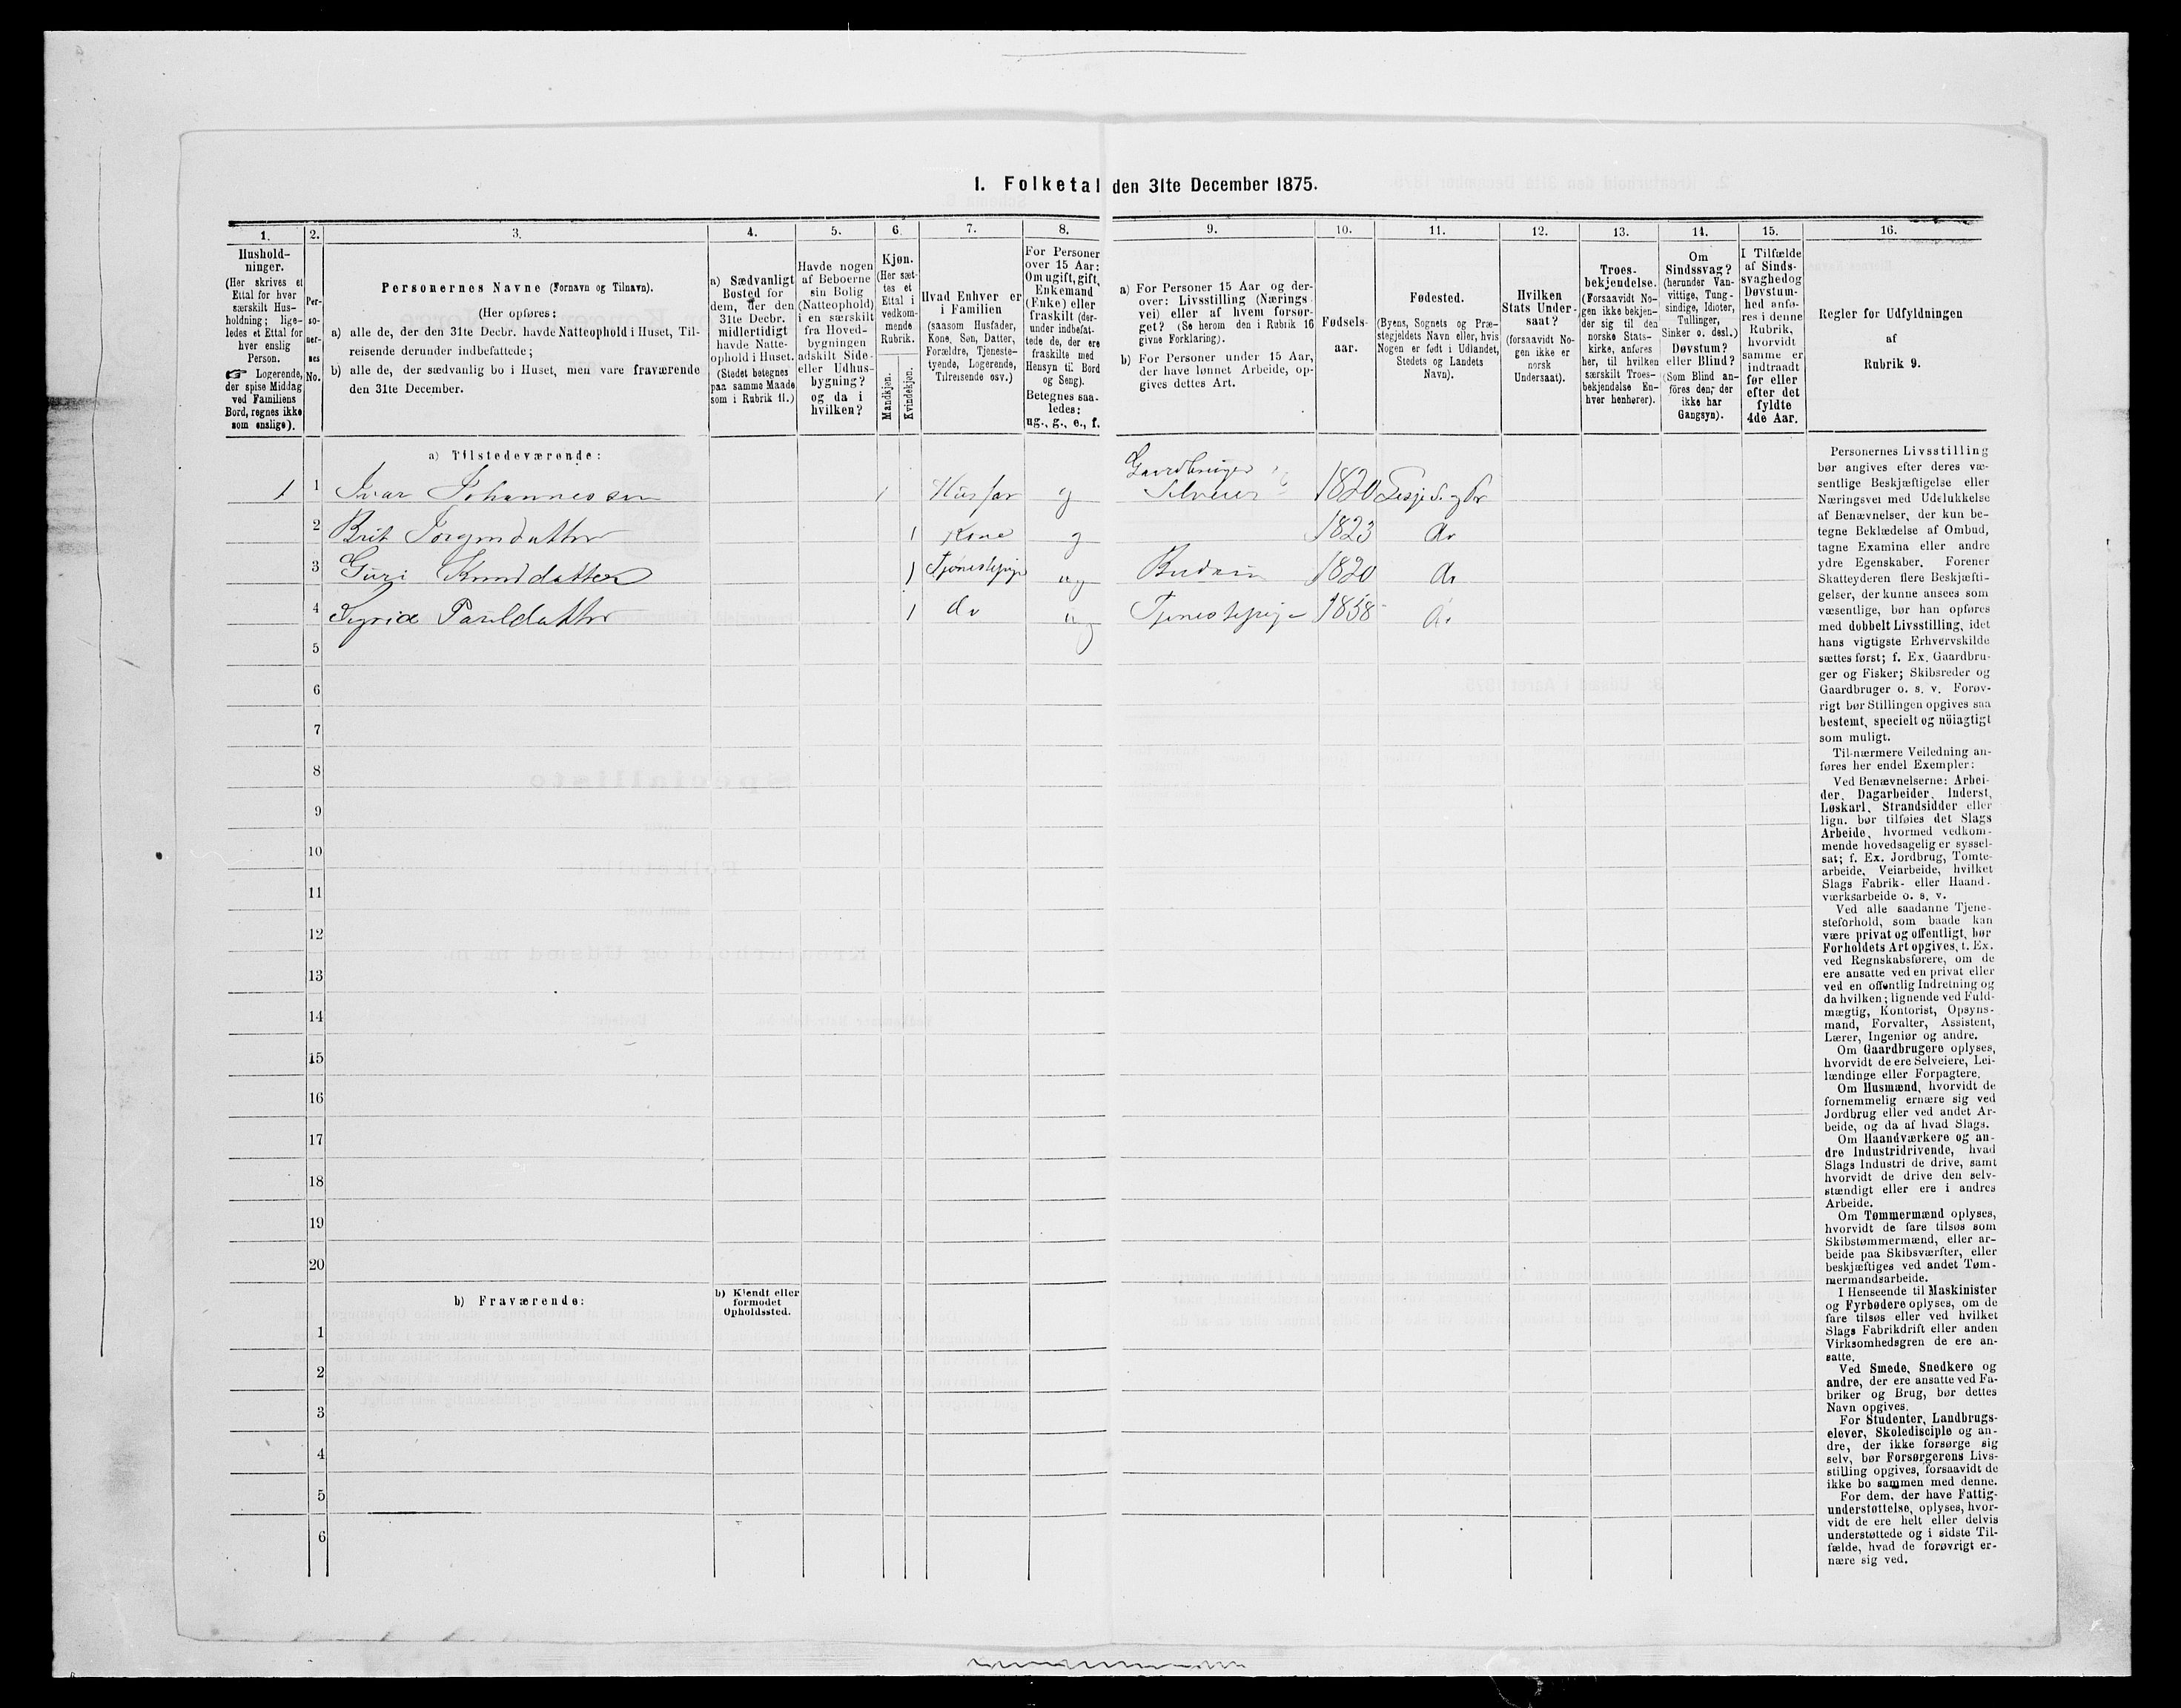 1. Folketal den 31te December 1875.
1. 2. 3. 4. 5. 6. 7. 8. 9. 10. 11. 12. 13. 14. 15. 16.
Hushold-
ninger.
(Her skrives et
Ettal for hver
særskilt Hus-
holdning; lige-
ledes et Ettal for
hver enslig
Person.
☞ Logerende,
der spise Middag
ved Familiens
Bord, regnes ikke
som enslige).
Per-
so-
ner-
nes
No.
Personernes Navne (Fornavn og Tilnavn).
(Her opføres:
a) alle de, der den 31te Decbr. havde Natteophold i Huset, Til-
reisende derunder indbefattede;
b) alle de, der sædvanlig bo i Huset, men vare fraværende
den 31te December.
a) Sædvanligt
Bosted for
dem, der den
31te Decbr.
midlertidigt
havde Natte-
ophold i Huset.
(Stedet betegnes
paa samme Maade
som i Rubrik 11.)
Havde nogen
af Beboerne
sin Bolig
(Natteophold)
i en særskilt
fra Hoved-
bygningen
adskilt Side-
eller Udhus-
bygning?
og da i
hvilken?
Kjøn.
(Her sæt-
tes et
Ettal i
vedkom-
mende
Rubrik.
Mandkjøn.
Kvindekjøn.
Hvad Enhver er
i Familien
(saasom Husfader,
Kone, Søn, Datter,
Forældre, Tjeneste-
tyende, Logerende,
Tilreisende osv.)
For Personer
over 15 Aar:
Om ugift, gift,
Enkemand
(Enke) eller
fraskilt (der-
under indbefat-
tede de, der ere
fraskilte med
Hensyn til Bord
og Seng).
Betegnes saa-
ledes:
ug., g., e., f.
a) For Personer 15 Aar og der-
over: Livsstilling (Nærings-
vei) eller af hvem forsør-
get? (Se herom den i Rubrik 16
givne Forklaring).
b) For Personer under 15 Aar,
der have lønnet Arbeide, op-
gives dettes Art.
Fødsels-
aar.
Fødested.
(Byens, Sognets og Præ-
stegjeldets Navn eller, hvis
Nogen er født i Udlandet,
Stedets og Landets
Navn).
Hvilken
Stats Under-
saat?
(forsaavidt No-
gen ikke er
norsk
Undersaat).
Troes-
bekjendelse.
(Forsaavidt No-
gen ikke bekjen-
der sig til den
norske Stats-
kirke, anføres
her, til hvilken
særskilt Troes-
bekjendelse En-
hver henhører).
Om
Sindssvag?
(herunder Van-
vittige, Tung-
sindige, Idioter,
Tullinger,
Sinker o. desl.)
Døvstum?
eller Blind?
(Som Blind an-
føres den, der
ikke har
Gangsyn).
I Tilfælde
af Sinds-
svaghed og
Døvstum-
hed anfø-
res i denne
Rubrik,
hvorvidt
samme er
indtraadt
før eller
efter det
fyldte
4de Aar.
Regler for Udfyldningen
af
Rubrik 9.
a) Tilstedeværende:
Gaardbruger
1 1 Ivar Johannessen 1 Husfar g Selveier 1820 Lesje S. og Pr
2 Brit Jorgendatter 1 Kone g 1823 do
3 Guri Knudsdatter 1 Tjenestepige ug Budeie 1820 do
4 Sigrid Pauldatter 1 do ug Tjenestepige 1858 do
5
6
7
8
9
10
11
12
13
14
15
16
17
18
19
20
b) Fraværende:
b) Kjendt eller
formodet
Opholdssted.
1
2
3
4
5
6
Personernes Livsstilling
bør angives efter deres væ-
sentlige Beskjæftigelse eller
Næringsvei med Udelukkelse
af Benævnelser, der kun be-
tegne Beklædelse af Ombud,
tagne Examina eller andre
ydre Egenskaber. Forener
Skatteyderen flere Beskjæfti-
gelser, der kunne ansees som
væsentlige, bør han opføres
med dobbelt Livsstilling, idet
hans vigtigste Erhvervskilde
sættes først; f. Ex. Gaardbru-
ger og Fisker; Skibsreder og
Gaardbruger o. s. v. Forøv-
rigt bør Stillingen opgives saa
bestemt, specielt og nöiagtigt
som muligt.
Til nærmere Veiledning an-
føres her endel Exempler:
Ved Benævnelserne: Arbei-
der, Dagarbeider, Inderst,
Løskarl, Strandsidder eller
lign. bør tilføies det Slags
Arbeide, hvormed vedkom-
mende hovedsagelig er syssel-
sat; f. Ex. Jordbrug, Tomte-
arbeide, Veiarbeide, hvilket
Slags Fabrik- eller Haand-
værksarbeide o. s. v.
Ved alle saadanne Tjene-
steforhold, som baade kan
være privat og offentligt, bør
Forholdets Art opgives, t. Ex.
ved Regnskabsførere, om de
ere ansatte ved en privat eller
ved en offentlig Indretning og
da hvilken; lignende ved Fuld-
mægtig, Kontorist, Opsyns-
mand, Forvalter, Assistent,
Lærer, Ingeniør og andre.
Om Gaardbrugere oplyses,
hvorvidt de ere Selveiere, Lei-
lændinge eller Forpagtere.
Om Husmænd, hvorvidt de
fornemmelig ernære sig ved
Jordbrug eller ved andet Ar-
beide, og da af hvad Slags.
Om Haandværkere og an-
dre Industridrivende, hvad
Slags Industri de drive, samt
hvorvidt de drive den selv-
stændigt eller ere i andres
Arbeide.
Om Tømmermænd oplyses,
hvorvidt de fare tilsøs som
Skibstømmermænd, eller ar-
beide paa Skibsværfter, eller
beskjæftiges ved andet Tøm-
mermandsarbeide.
I Henseende til Maskinister
og Fyrbødere oplyses, om de
fare tilsøs eller ved hvilket
Slags Fabrikdrift eller anden
Virksomhedsgren de ere an-
satte.
Ved Smede, Snedkere og
andre, der ere ansatte ved Fa-
briker og Brug, bør dettes
Navn opgives.
For Studenter, Landbrugs-
elever, Skoledisciple og an-
dre, der ikke forsørge sig
selv, bør Forsørgerens Livs-
stilling opgives, forsaavidt de
ikke bo sammen med denne.
For dem, der have Fattig-
understøttelse, oplyses, hvor-
vidt de ere helt eller delvis
understøttede og i sidste Til-
fælde, hvad de forøvrigt er-
nære sig ved.